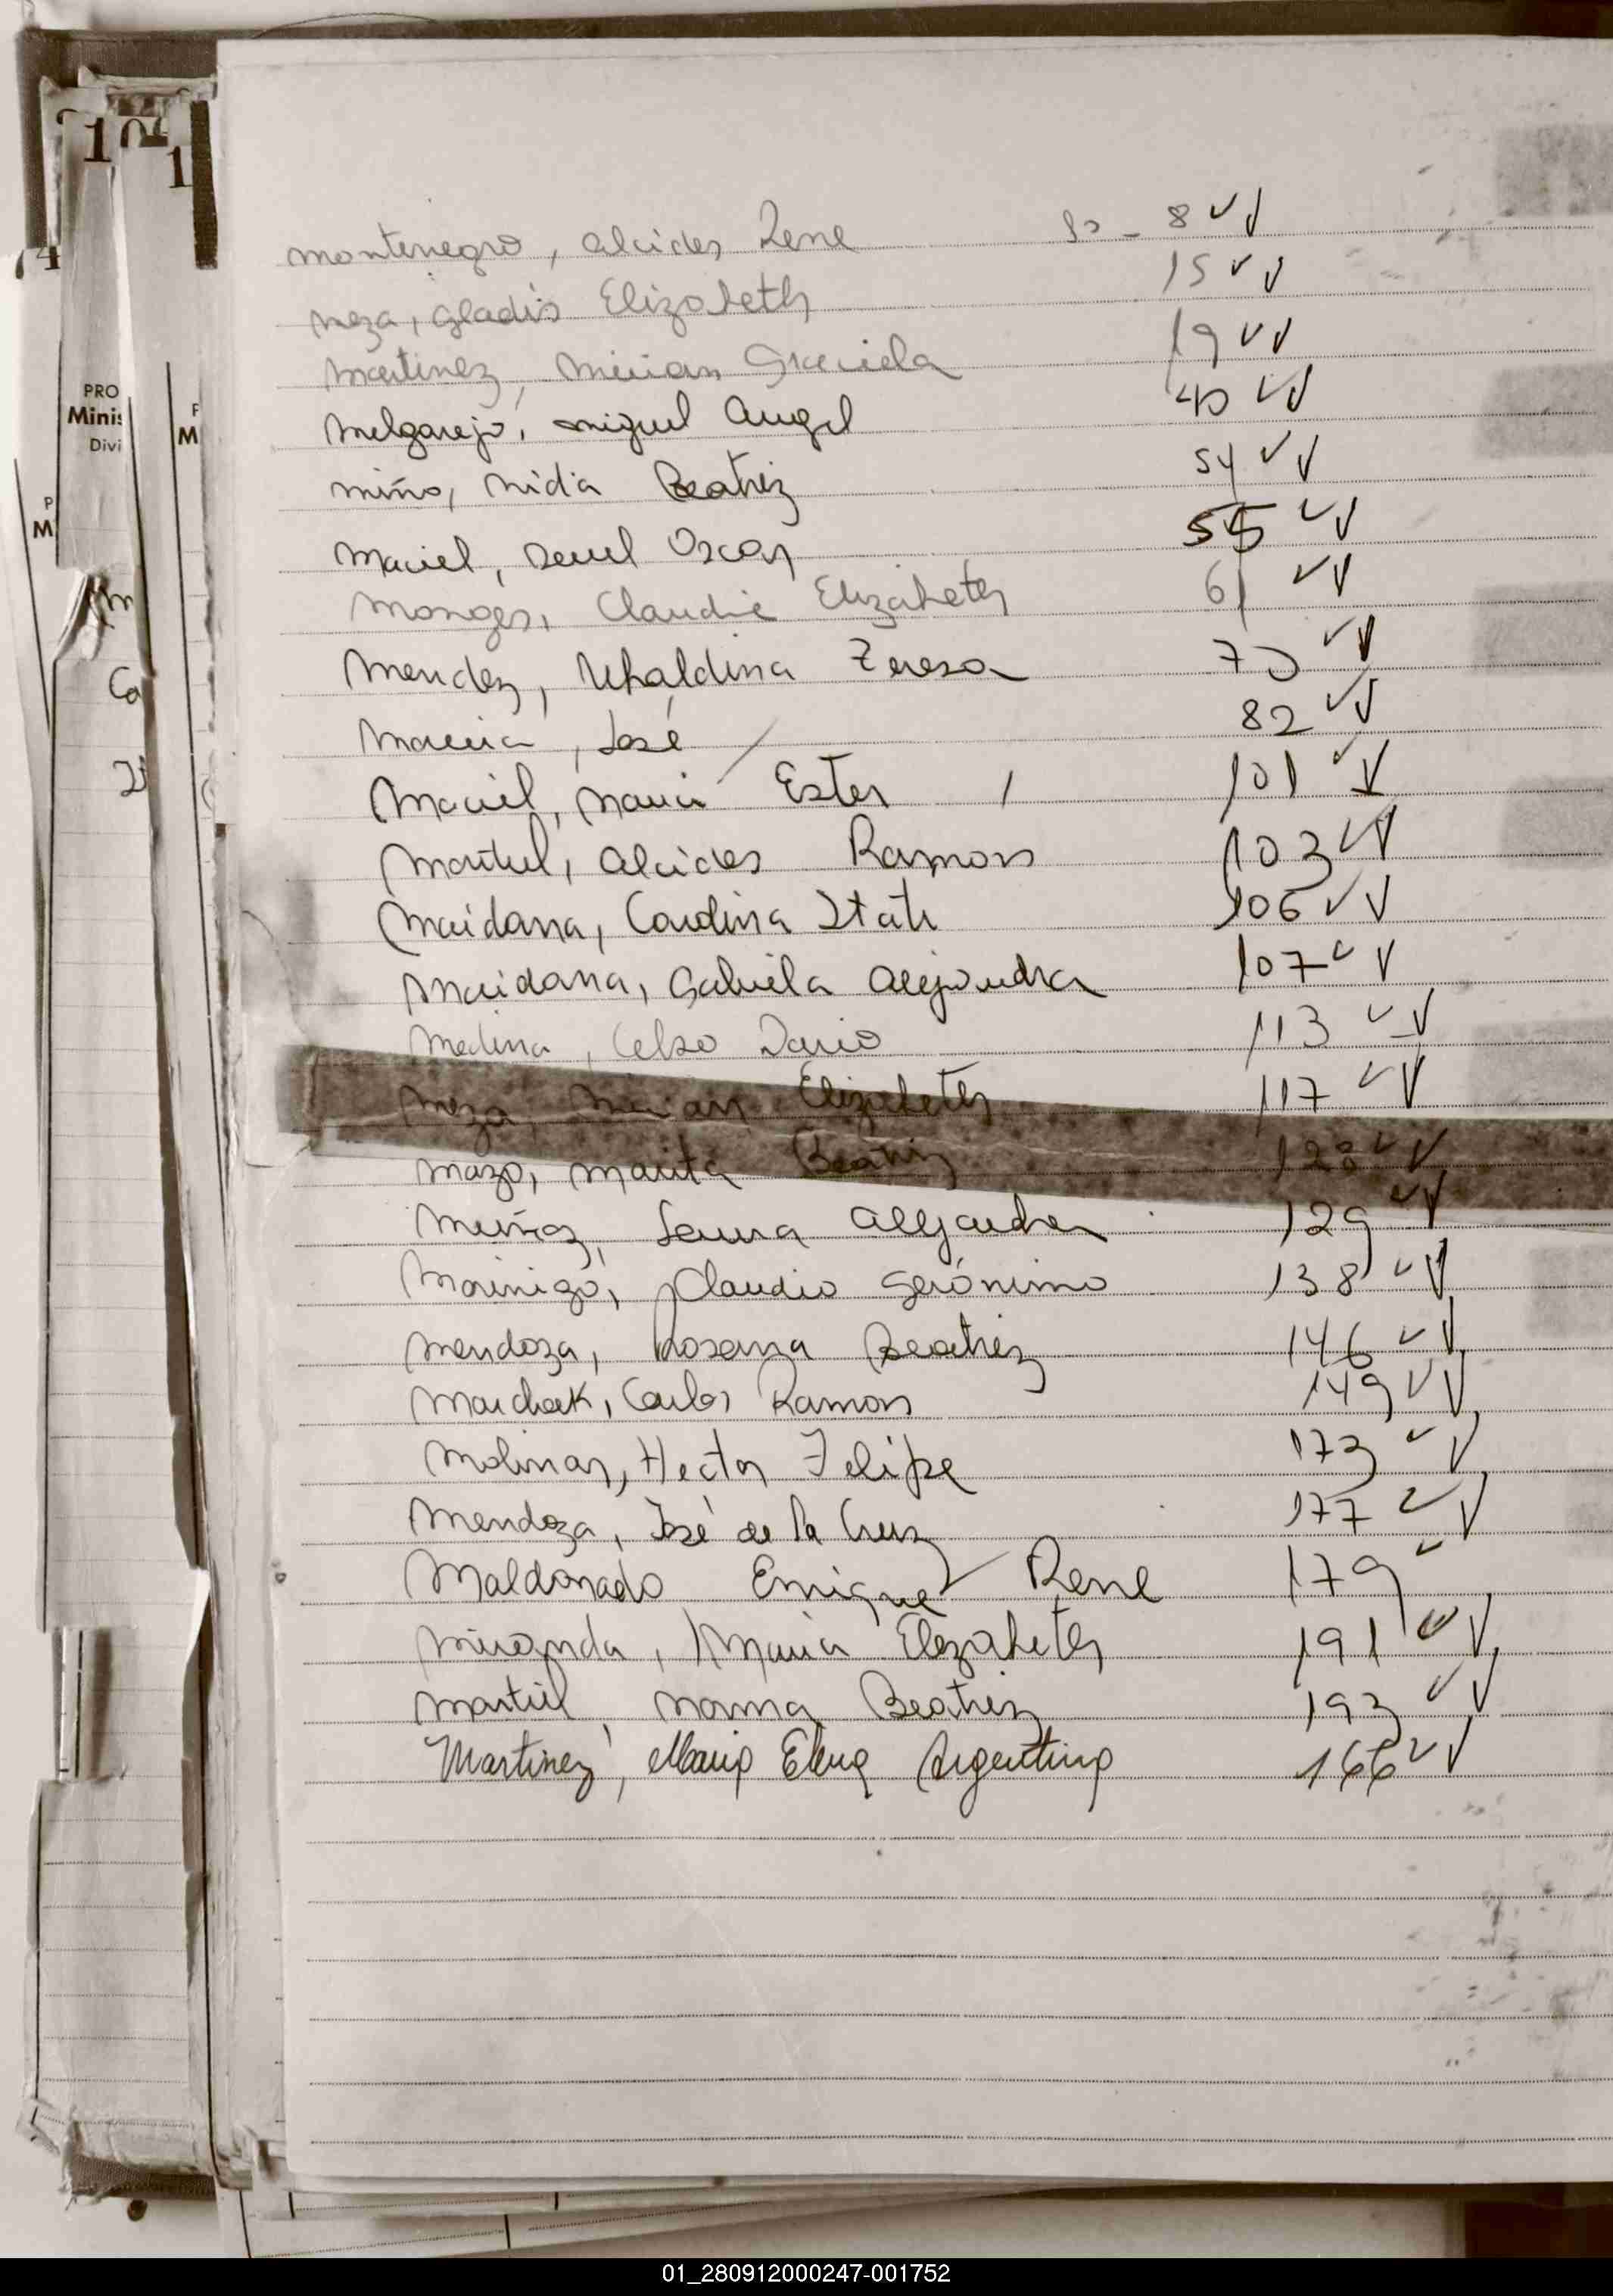 Montenegro, Alcides Rene 8
Meza, Gladis Elizabeth 15
Martinez, Mirian Graciela 19
Melgarejo, Miguel Angel 40
Miño, Nidia Beatriz 54
Maciel, Oscar 55
Monges, Claudia Elizabeth 61
Mendez, Ubaldina Teresa 70
José 82
Maciel, Maria Ester 101
Montiel, Alcides Ramon 103
Maidana, Carolina Itati 106
Maidana, Gabriela Alejandra 107
Medina, Celso Dario 113
Meza, Mirian Elizabeth 117
Mazo, Marita Beatriz 128
Muñoz, Laura Alejandra 129
Morinigo, Claudio Gerónimo 138
Mendoza, Rosana Beatriz 146
Carlos Ramon 149
Molinas, Hector Felipe 173
Mendoza, José de la Cruz 177
Maldonado Enrique Rene 179
Miranda, Maria Elizabeth 191
Montiel Norma Beatriz 193
Martinez, Maria Elena Argentina 166
PRO
Minis
Divi
F
M
P
M
01_280912000247-001752